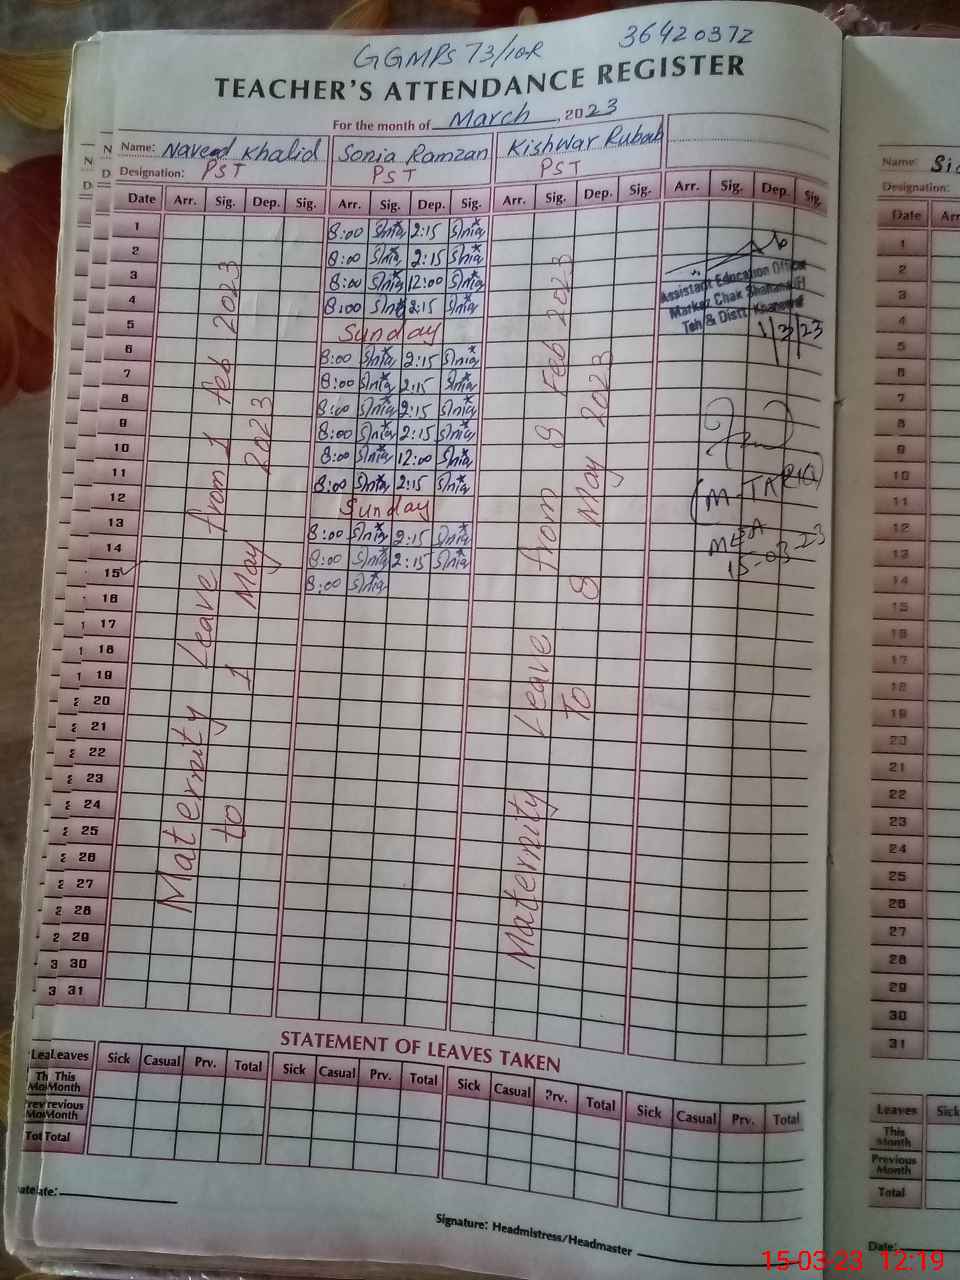 GGMPS 73/10R 36420372
TEACHER'S ATTENDANCE REGISTER
For the month of March, 2023
Name: Naveed Khalid Sonia Ramzan Kishwar Rubab
Designation: PST PST PST
Date Arr. Sig. Dep. Sig. Arr. Sig. Dep. Sig. Arr. Sig. Dep. Sig. Arr. Sig. Dep. Sig.
1 8:00 Sonia 2:15 Sonia
2 8:00 Sonia 2:15 Sonia
3 8:00 Sonia 12:00 Sonia
4 8:00 Sonia 2:15 Sonia
5 Sunday
6 8:00 Sonia 2:15 Sonia
7 8:00 Sonia 2:15 Sonia
8 8:00 Sonia 2:15 Sonia
9 8:00 Sonia 2:15 Sonia
10 8:00 Sonia 12:00 Sonia
11 8:00 Sonia 2:15 Sonia
12 Sunday
13 8:00 Sonia 2:15 Sonia
14 8:00 Sonia 2:15 Sonia
15 8:00 Sonia
16
17
18
19
20
21
22
23
24
25
26
27
28
29
30
31
Maternity Leave from 1 feb 2023
to 1 May 2023
Maternity Leave from 9 Feb 2023
To 8 May 2023
Assistant Education Officer
Markaz Chak
Teh & Distt. Khanewal
1/3/23
(M-TARIQ)
MEA
15-03-23
STATEMENT OF LEAVES TAKEN
Leaves Sick Casual Prv. Total Sick Casual Prv. Total Sick Casual Prv. Total Sick Casual Prv. Total
This Month
Previous Month
Total
Date:
Signature: Headmistress/Headmaster
Name:
Designation:
Date Arr
1
2
3
4
5
6
7
8
9
10
11
12
13
14
15
16
17
18
19
20
21
22
23
24
25
26
27
28
29
30
31
Leaves Sick
This Month
Previous Month
Total
Date:
15-03-23 12:19